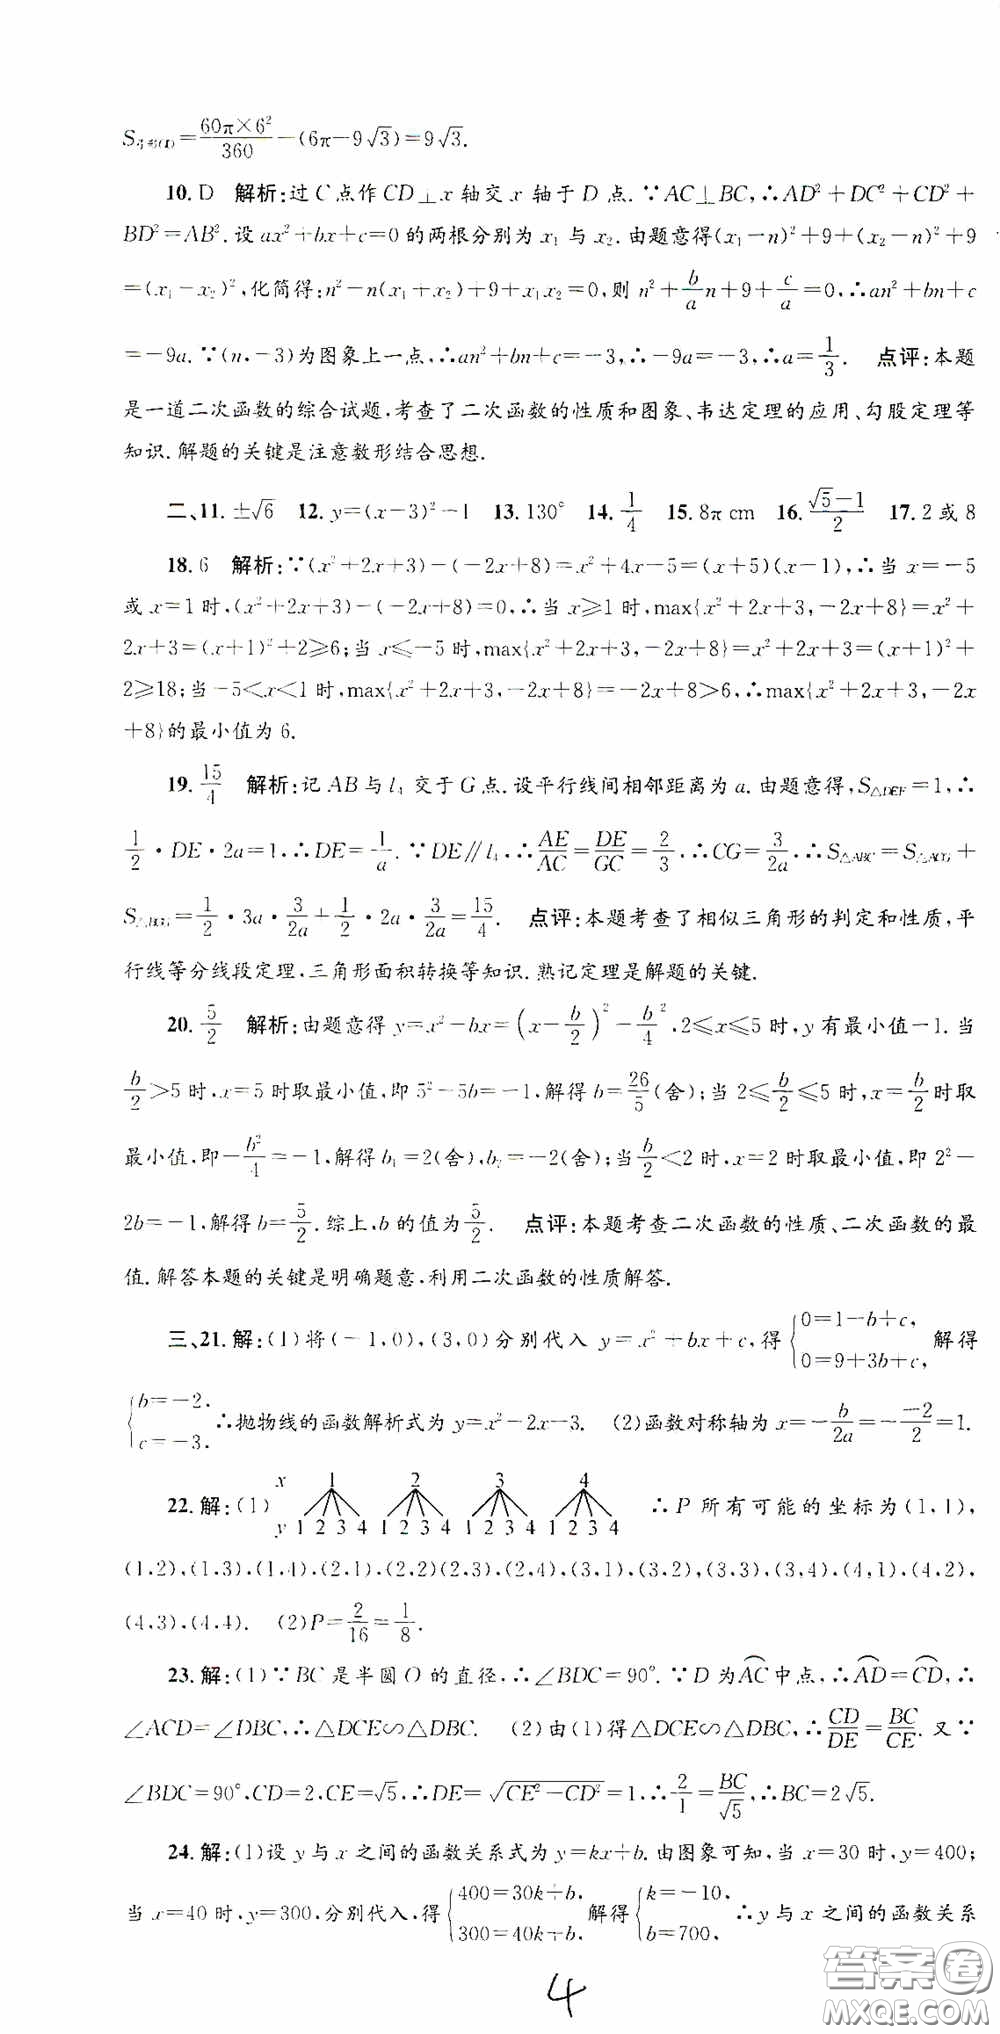 S弓形(Ⅱ)=60π×6²/360−(6π−9√3)=9√3.
10. D 解析:过C点作CD⊥x轴交x轴于D点.∵AC⊥BC,∴AD²+DC²+CD²+
BD²=AB².设ax²+bx+c=0的两根分别为x₁与x₂.由题意得(x₁−n)²+9+(x₂−n)²+9
=(x₁−x₂)²,化简得:n²−n(x₁+x₂)+9+x₁x₂=0,则n²+b/a n+9+c/a=0,∴an²+bn+c
=−9a.∵(n,−3)为图象上一点,∴an²+bn+c=−3,∴−9a=−3,∴a=1/3. 点评:本题
是一道二次函数的综合试题,考查了二次函数的性质和图象、韦达定理的应用、勾股定理等
知识.解题的关键是注意数形结合思想.
二、11. ±√6 12. y=(x−3)²−1 13. 130° 14. 1/4 15. 8π cm 16. (√5−1)/2 17. 2或8
18. 6 解析:∵(x²+2x+3)−(−2x+8)=x²+4x−5=(x+5)(x−1),∴当x=−5
或x=1时,(x²+2x+3)−(−2x+8)=0,∴当x≥1时,max{x²+2x+3,−2x+8}=x²+
2x+3=(x+1)²+2≥6;当x≤−5时,max{x²+2x+3,−2x+8}=x²+2x+3=(x+1)²+
2≥18;当−5<x<1时,max{x²+2x+3,−2x+8}=−2x+8>6,∴max{x²+2x+3,−2x
+8}的最小值为6.
19. 15/4 解析:记AB与l₄交于G点.设平行线间相邻距离为a.由题意得,S△DEF=1,∴
1/2·DE·2a=1,∴DE=1/a.∵DE∥l₄,∴AE/AC=DE/GC=2/3,∴CG=3/2a.∴S△ABC=S△ACG+
S△BCG=1/2·3a·3/2a+1/2·2a·3/2a=15/4. 点评:本题考查了相似三角形的判定和性质,平
行线等分线段定理,三角形面积转换等知识.熟记定理是解题的关键.
20. 5/2 解析:由题意得y=x²−bx=(x−b/2)²−b²/4,2≤x≤5时,y有最小值−1.当
b/2>5时,x=5时取最小值,即5²−5b=−1,解得b=26/5(舍);当2≤b/2≤5时,x=b/2时取
最小值,即−b²/4=−1,解得b₁=2(舍),b₂=−2(舍);当b/2<2时,x=2时取最小值,即2²−
2b=−1,解得b=5/2.综上,b的值为5/2. 点评:本题考查二次函数的性质、二次函数的最
值.解答本题的关键是明确题意,利用二次函数的性质解答.
三、21. 解:(1)将(−1,0),(3,0)分别代入y=x²+bx+c,得{0=1−b+c, 0=9+3b+c,解得
{b=−2, c=−3.∴抛物线的函数解析式为y=x²−2x−3. (2)函数对称轴为x=−b/2a=−−2/2=1.
22. 解:(1) x 1 2 3 4
y 1 2 3 4 1 2 3 4 1 2 3 4 1 2 3 4 ∴P所有可能的坐标为(1,1),
(1,2),(1,3),(1,4),(2,1),(2,2)(2,3),(2,4),(3,1),(3,2),(3,3),(3,4),(4,1),(4,2),
(4,3),(4,4). (2)P=2/16=1/8.
23. 解:(1)∵BC是半圆O的直径,∴∠BDC=90°.∵D为⌒AC中点,∴⌒AD=⌒CD,∴
∠ACD=∠DBC,∴△DCE∽△DBC. (2)由(1)得△DCE∽△DBC,∴CD/DE=BC/CE.又∵
∠BDC=90°,CD=2,CE=√5,∴DE=√(CE²−CD²)=1,∴2/1=BC/√5,∴BC=2√5.
24. 解:(1)设y与x之间的函数关系式为y=kx+b.由图象可知,当x=30时,y=400;
当x=40时,y=300,分别代入,得{400=30k+b, 300=40k+b,解得{k=−10, b=700,∴y与x之间的函数关系
4
答案圈
MXQE.COM